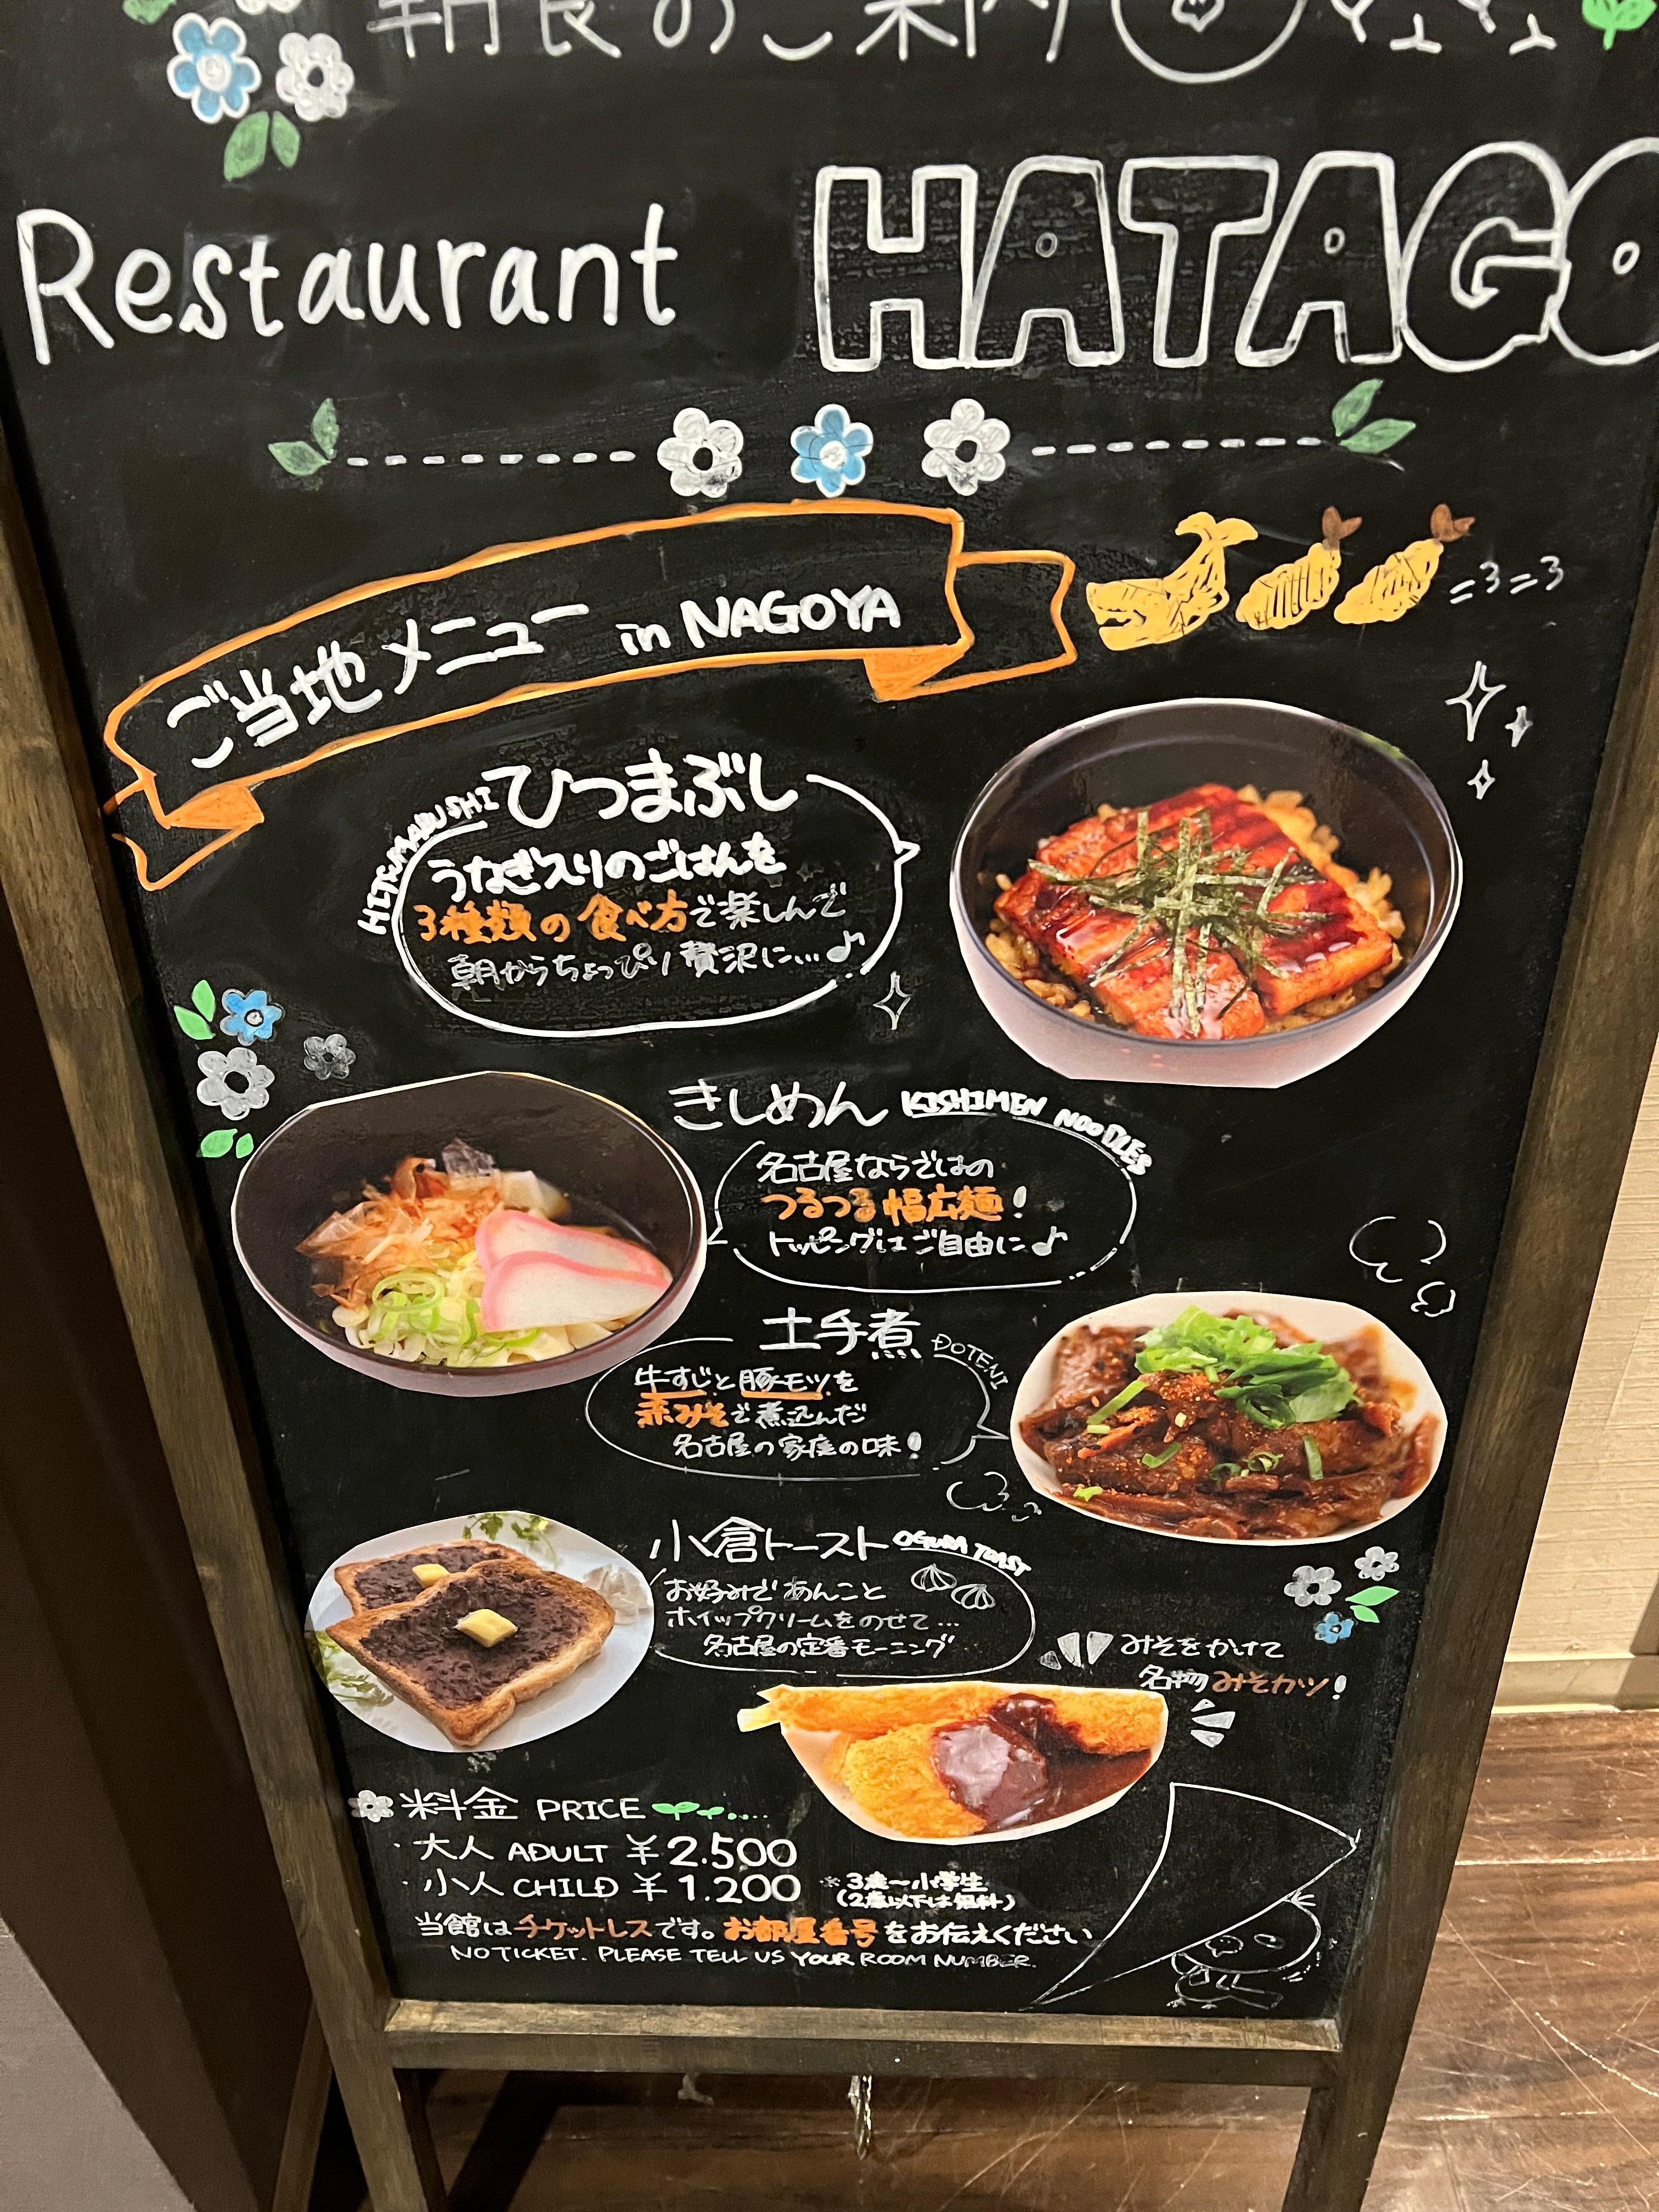 朝食のご案内
Restaurant HATAGO
ご当地メニュー in NAGOYA
=3=3
HITSUMABUSHI ひつまぶし
うなぎ入りのごはんを
3種類の食べ方で楽しんで
朝からちょっぴり贅沢に…♪
きしめん KISHIMEN NOODLES
名古屋ならではの
つるつる幅広麺!
トッピングはご自由に♪
土手煮 DOTENI
牛すじと豚モツを
赤みそで煮込んだ
名古屋の家庭の味!
小倉トースト OGURA TOAST
お好みであんこと
ホイップクリームをのせて…
名古屋の定番モーニング
みそをかけて
名物みそカツ!
料金 PRICE
・大人 ADULT ¥2.500
・小人 CHILD ¥1.200 ※3歳~小学生
(2歳以下は無料)
当館はチケットレスです。お部屋番号をお伝えください
NO TICKET. PLEASE TELL US YOUR ROOM NUMBER.